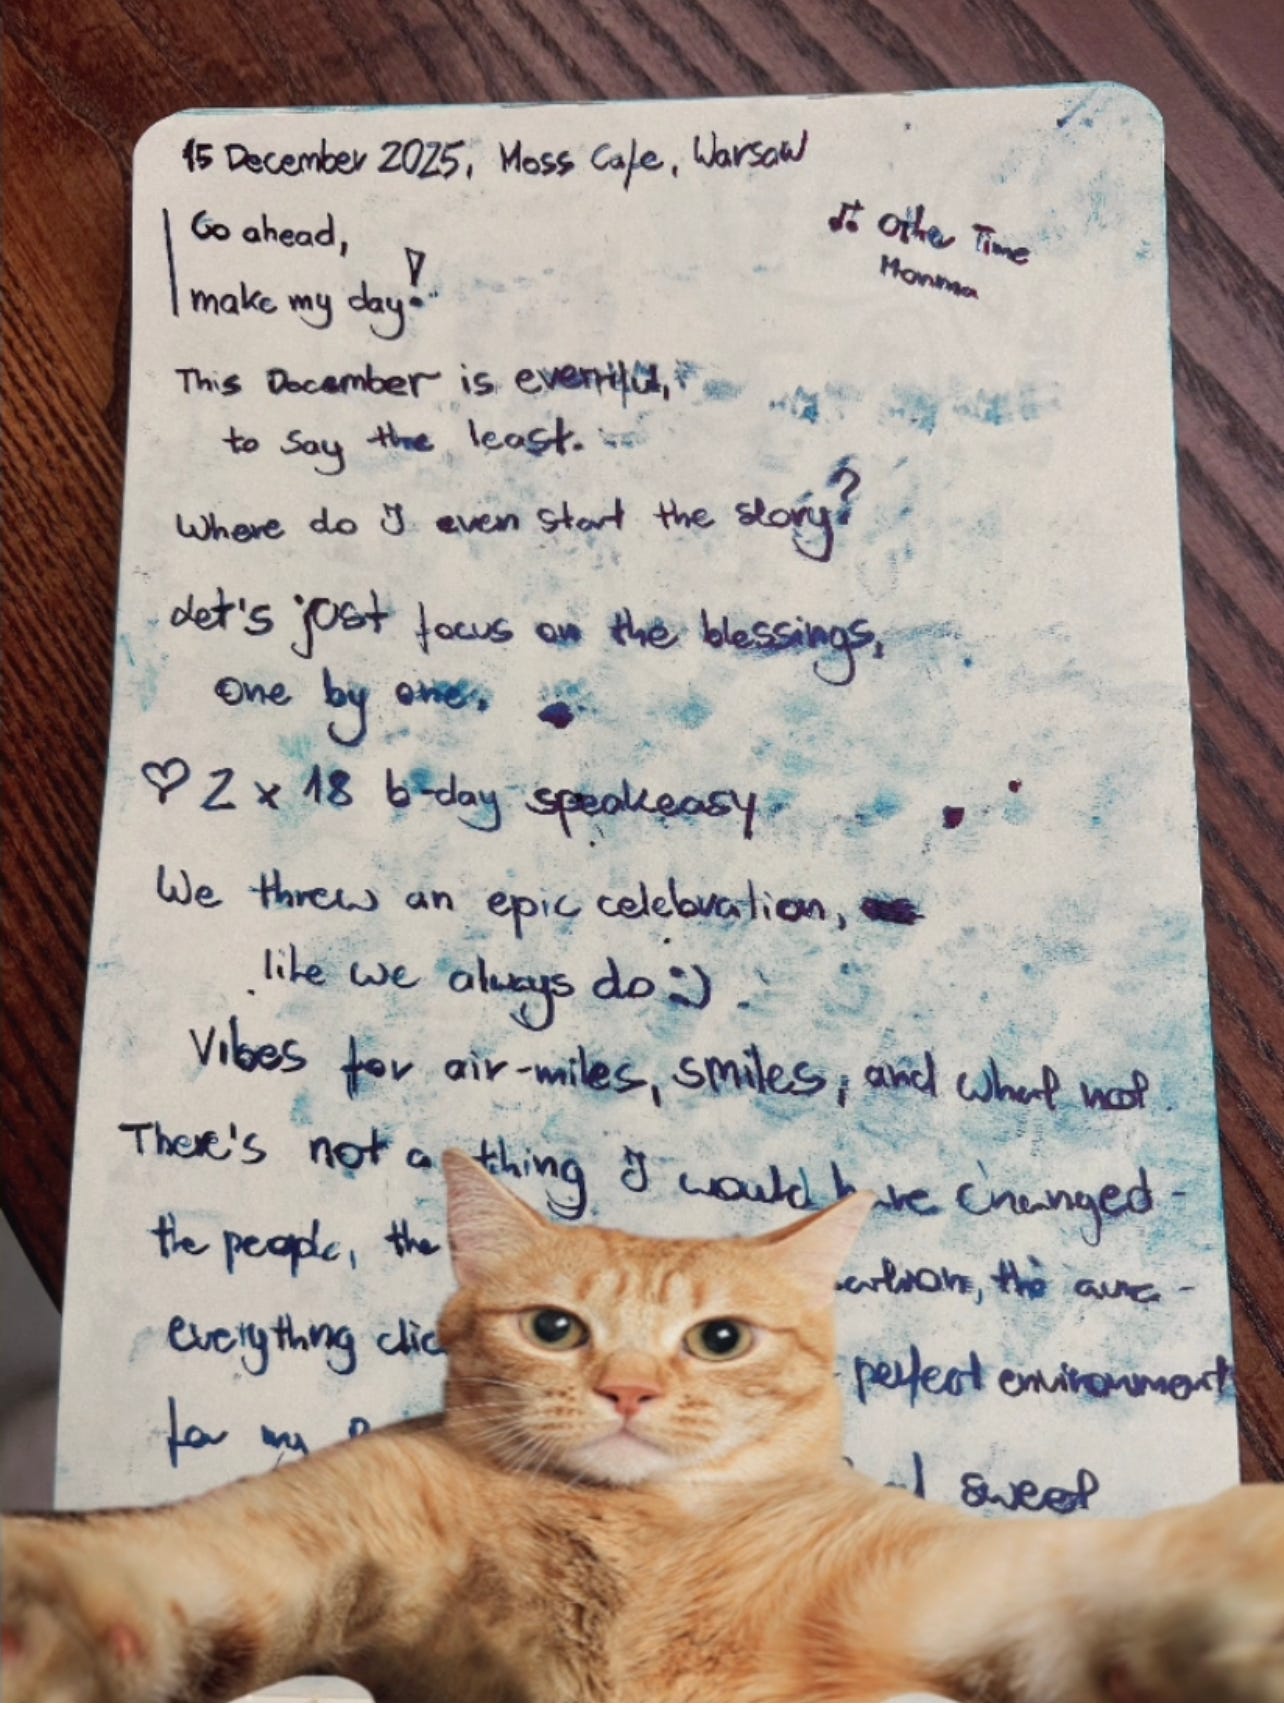 15 December 2025, Moss Cafe, Warsaw
♫ Other Time
Momma
Go ahead,
make my day!
This December is eventful,
to say the least.
Where do I even start the story?
Let's just focus on the blessings,
one by one.
♡ 2 x 18 b-day speakeasy
We threw an epic celebration,
like we always do :)
Vibes for air-miles, smiles, and what not
There's not a thing I would have changed -
the people, the , the aura -
everything perfect environment
for my
sweet